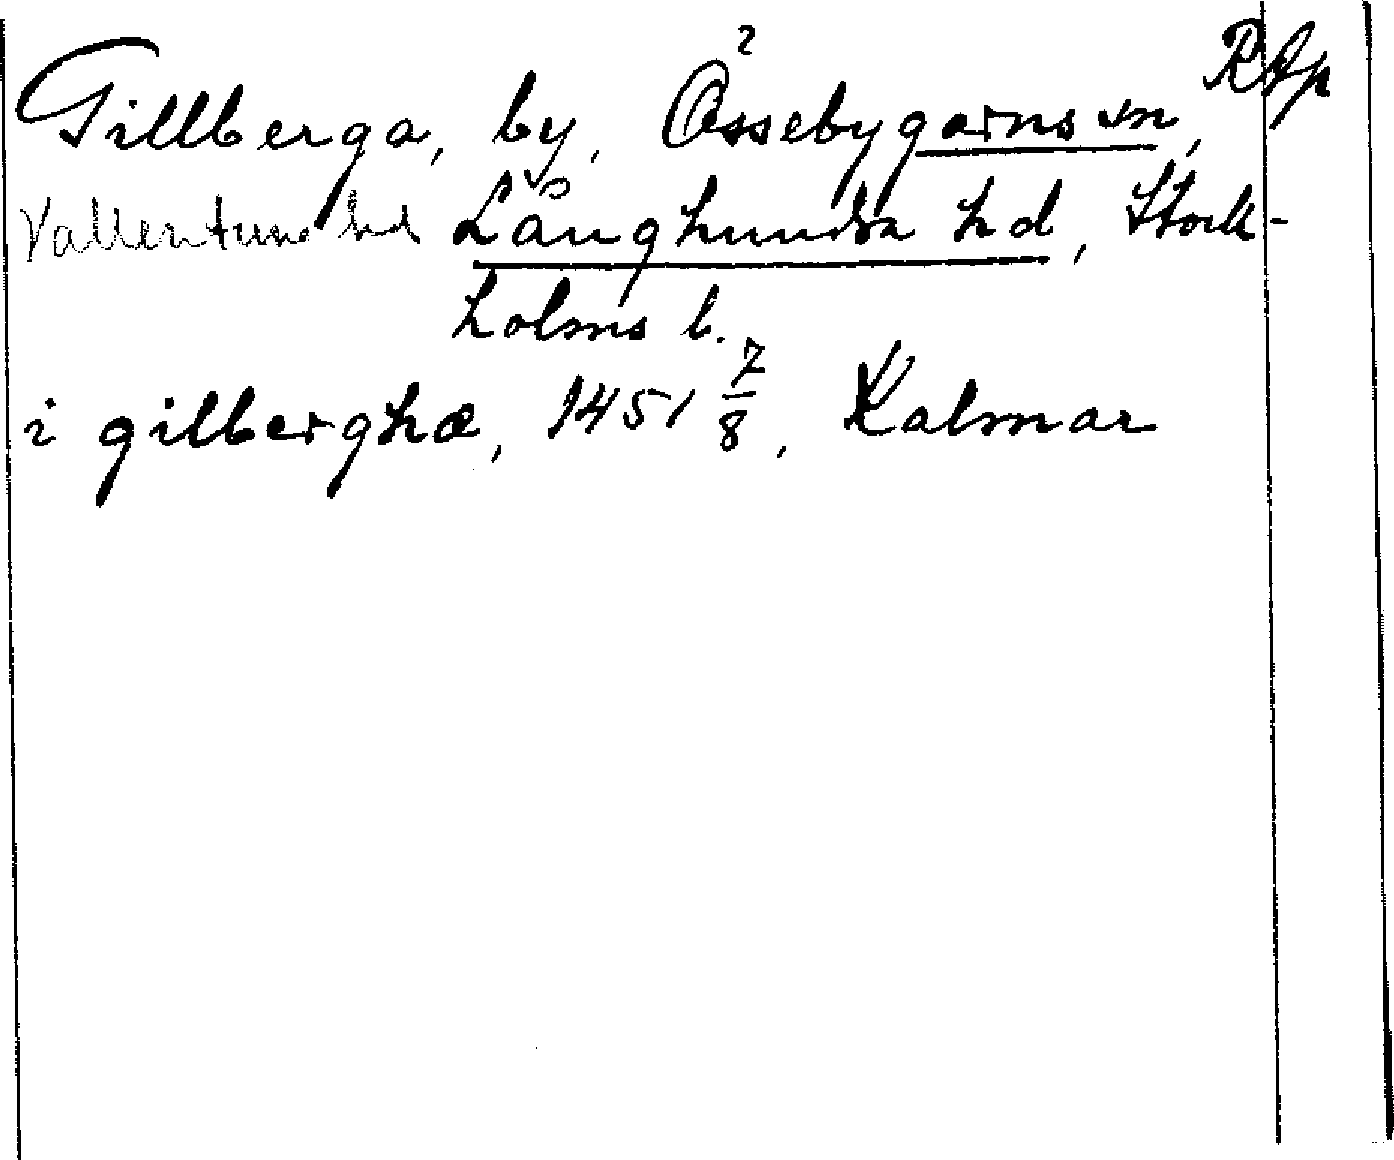 Gillberga, by, Össebygarns sn, RAp
?
Vallentuna hd Långhundra hd, Stock-
holms l.
i gilberghæ, 1451 7/8, Kalmar